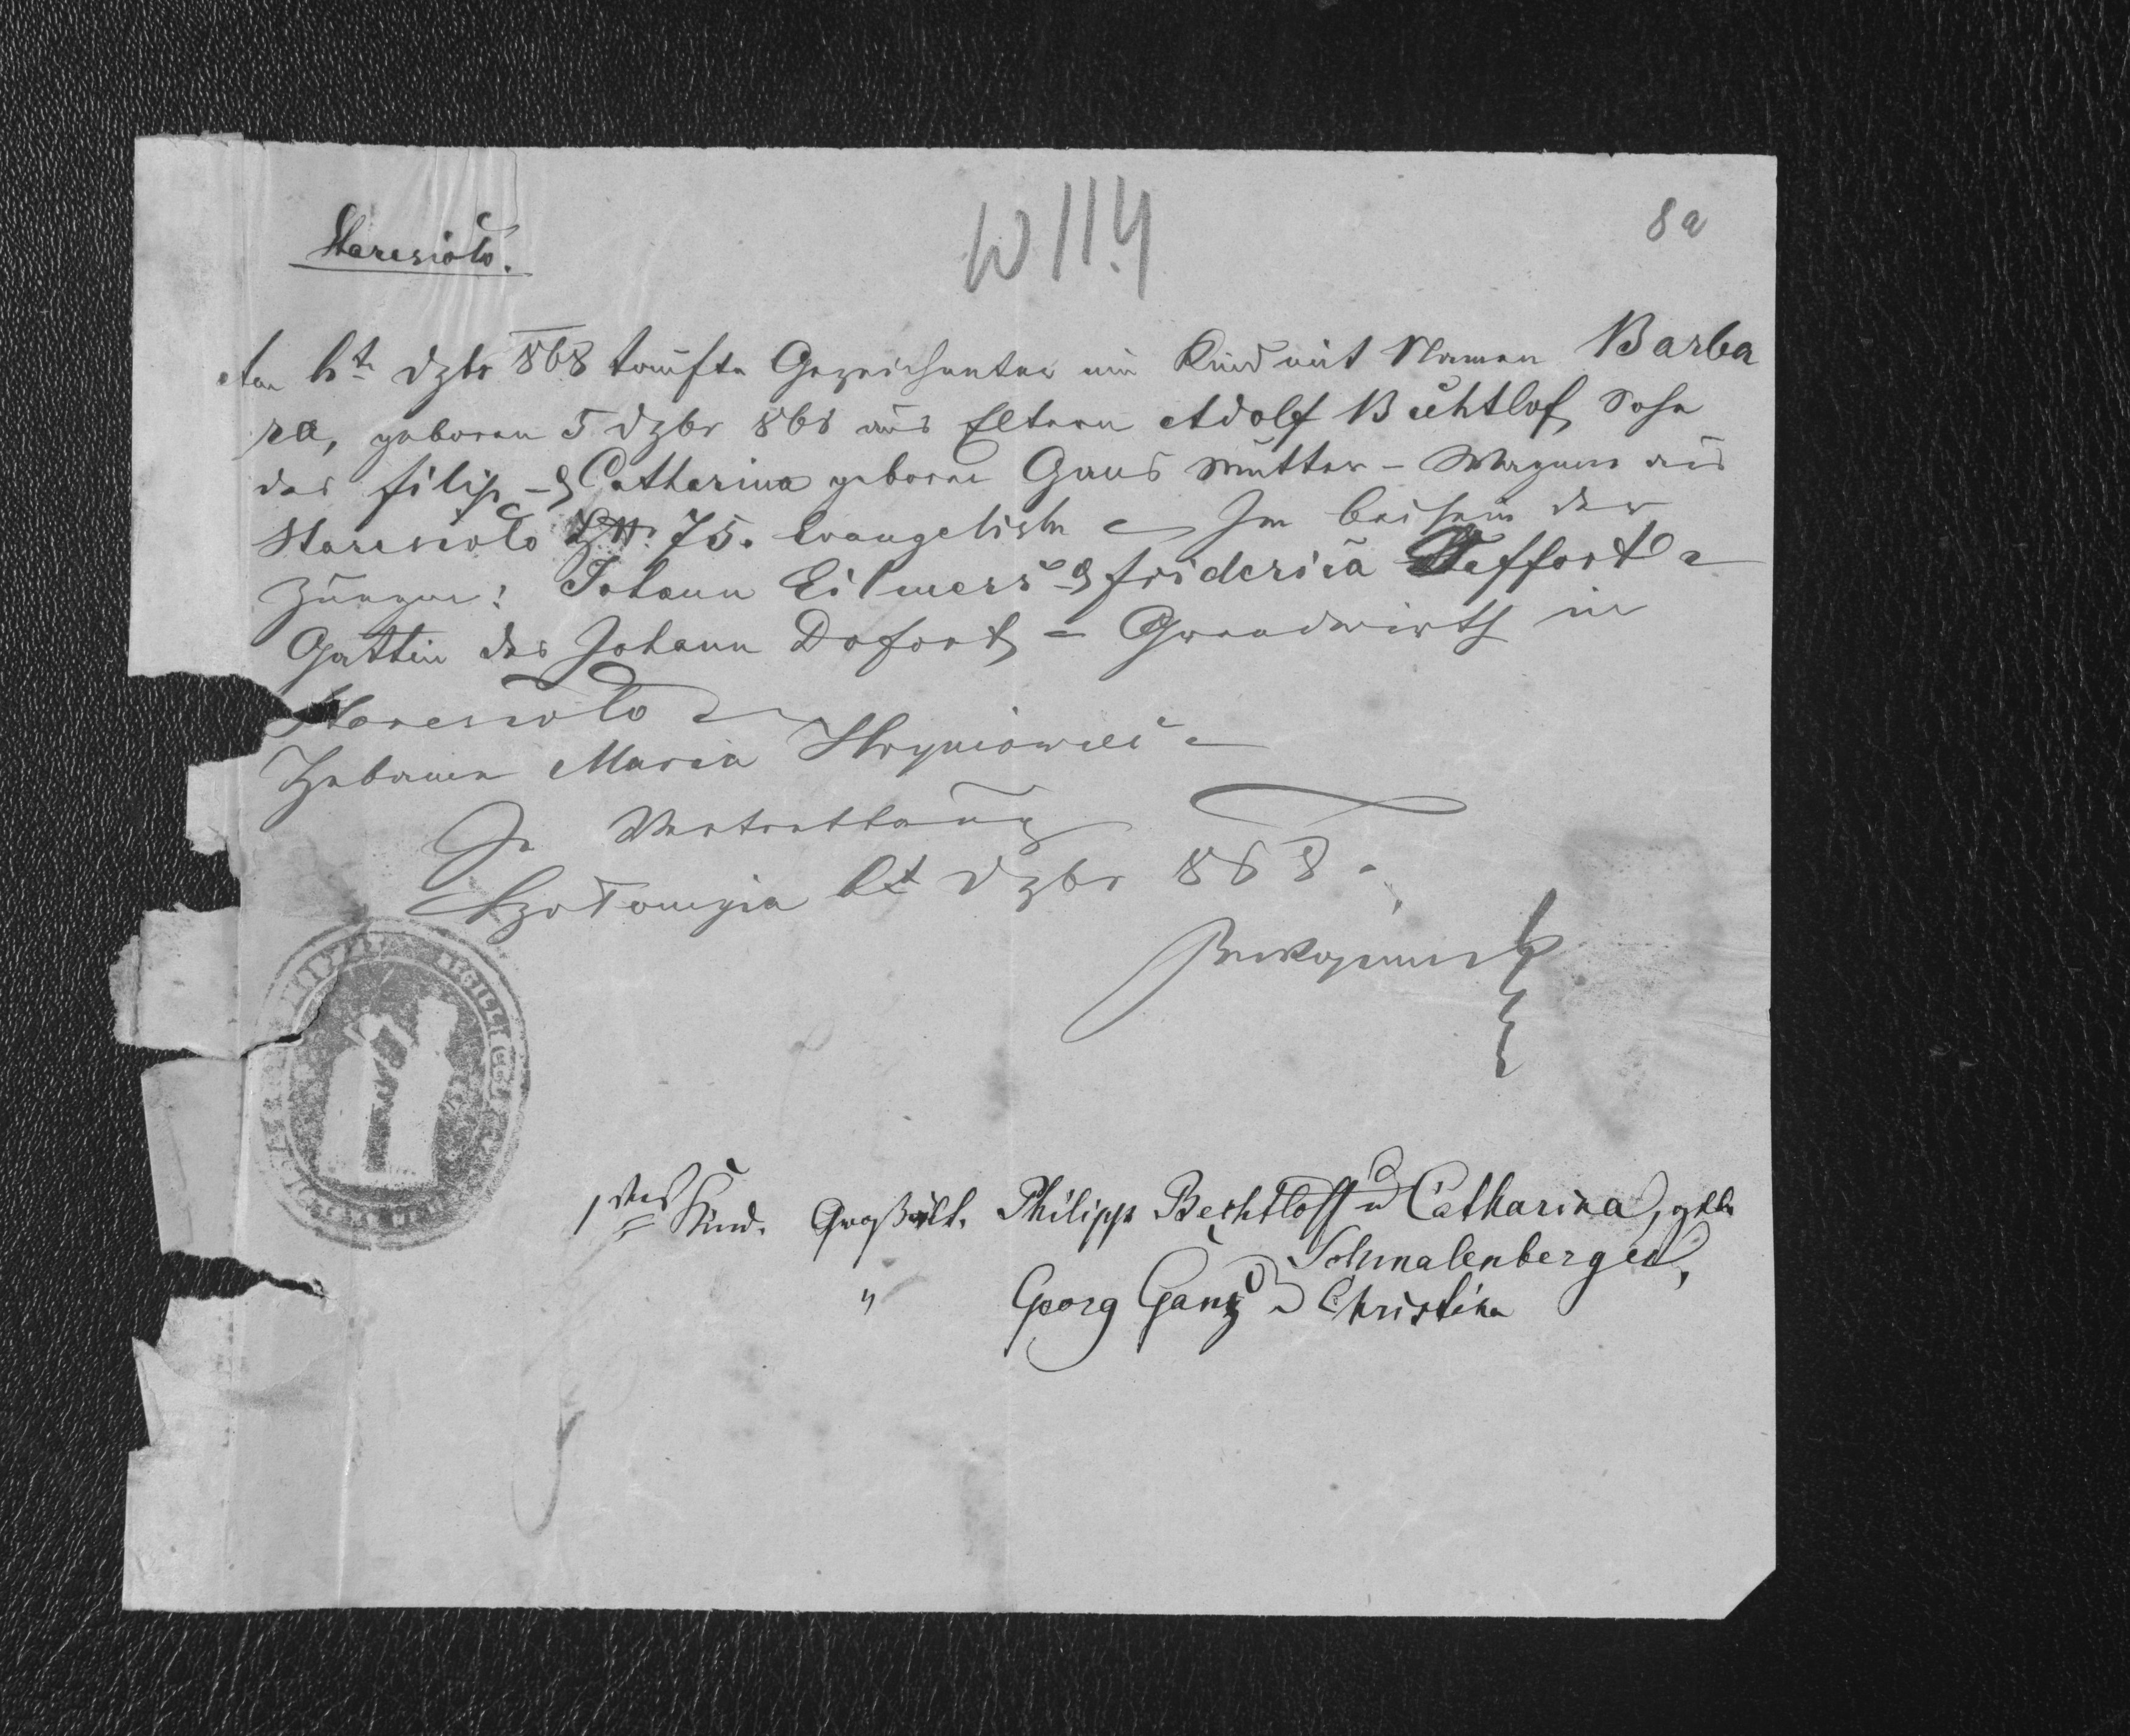 Staresioło.
W 11.4
8a
den 6tn Dzbr 868 taufte Gezeichneter ein Kind mit Namen Barba
ra, geboren 5 Dzbr 868 aus Eltern Adolf Bechtlof, Sohn
des Filip & Catharina geborne Gans Mutter - aus
Staresioło HN. 75. Evangelisch Im Beisein der
Zeugen: Johann Eilmers & Friderica Deffort
Gattin des Johann Dofort - Grundwirth in
Staresioło
Hebame Maria Hryniowicz
In Vertrettung
6t Dzbr 868.
1stes Kind. Großält. Philipp Bechtloff u Catharina, gbn
Schmalenberger,
" Georg Ganz u Christina